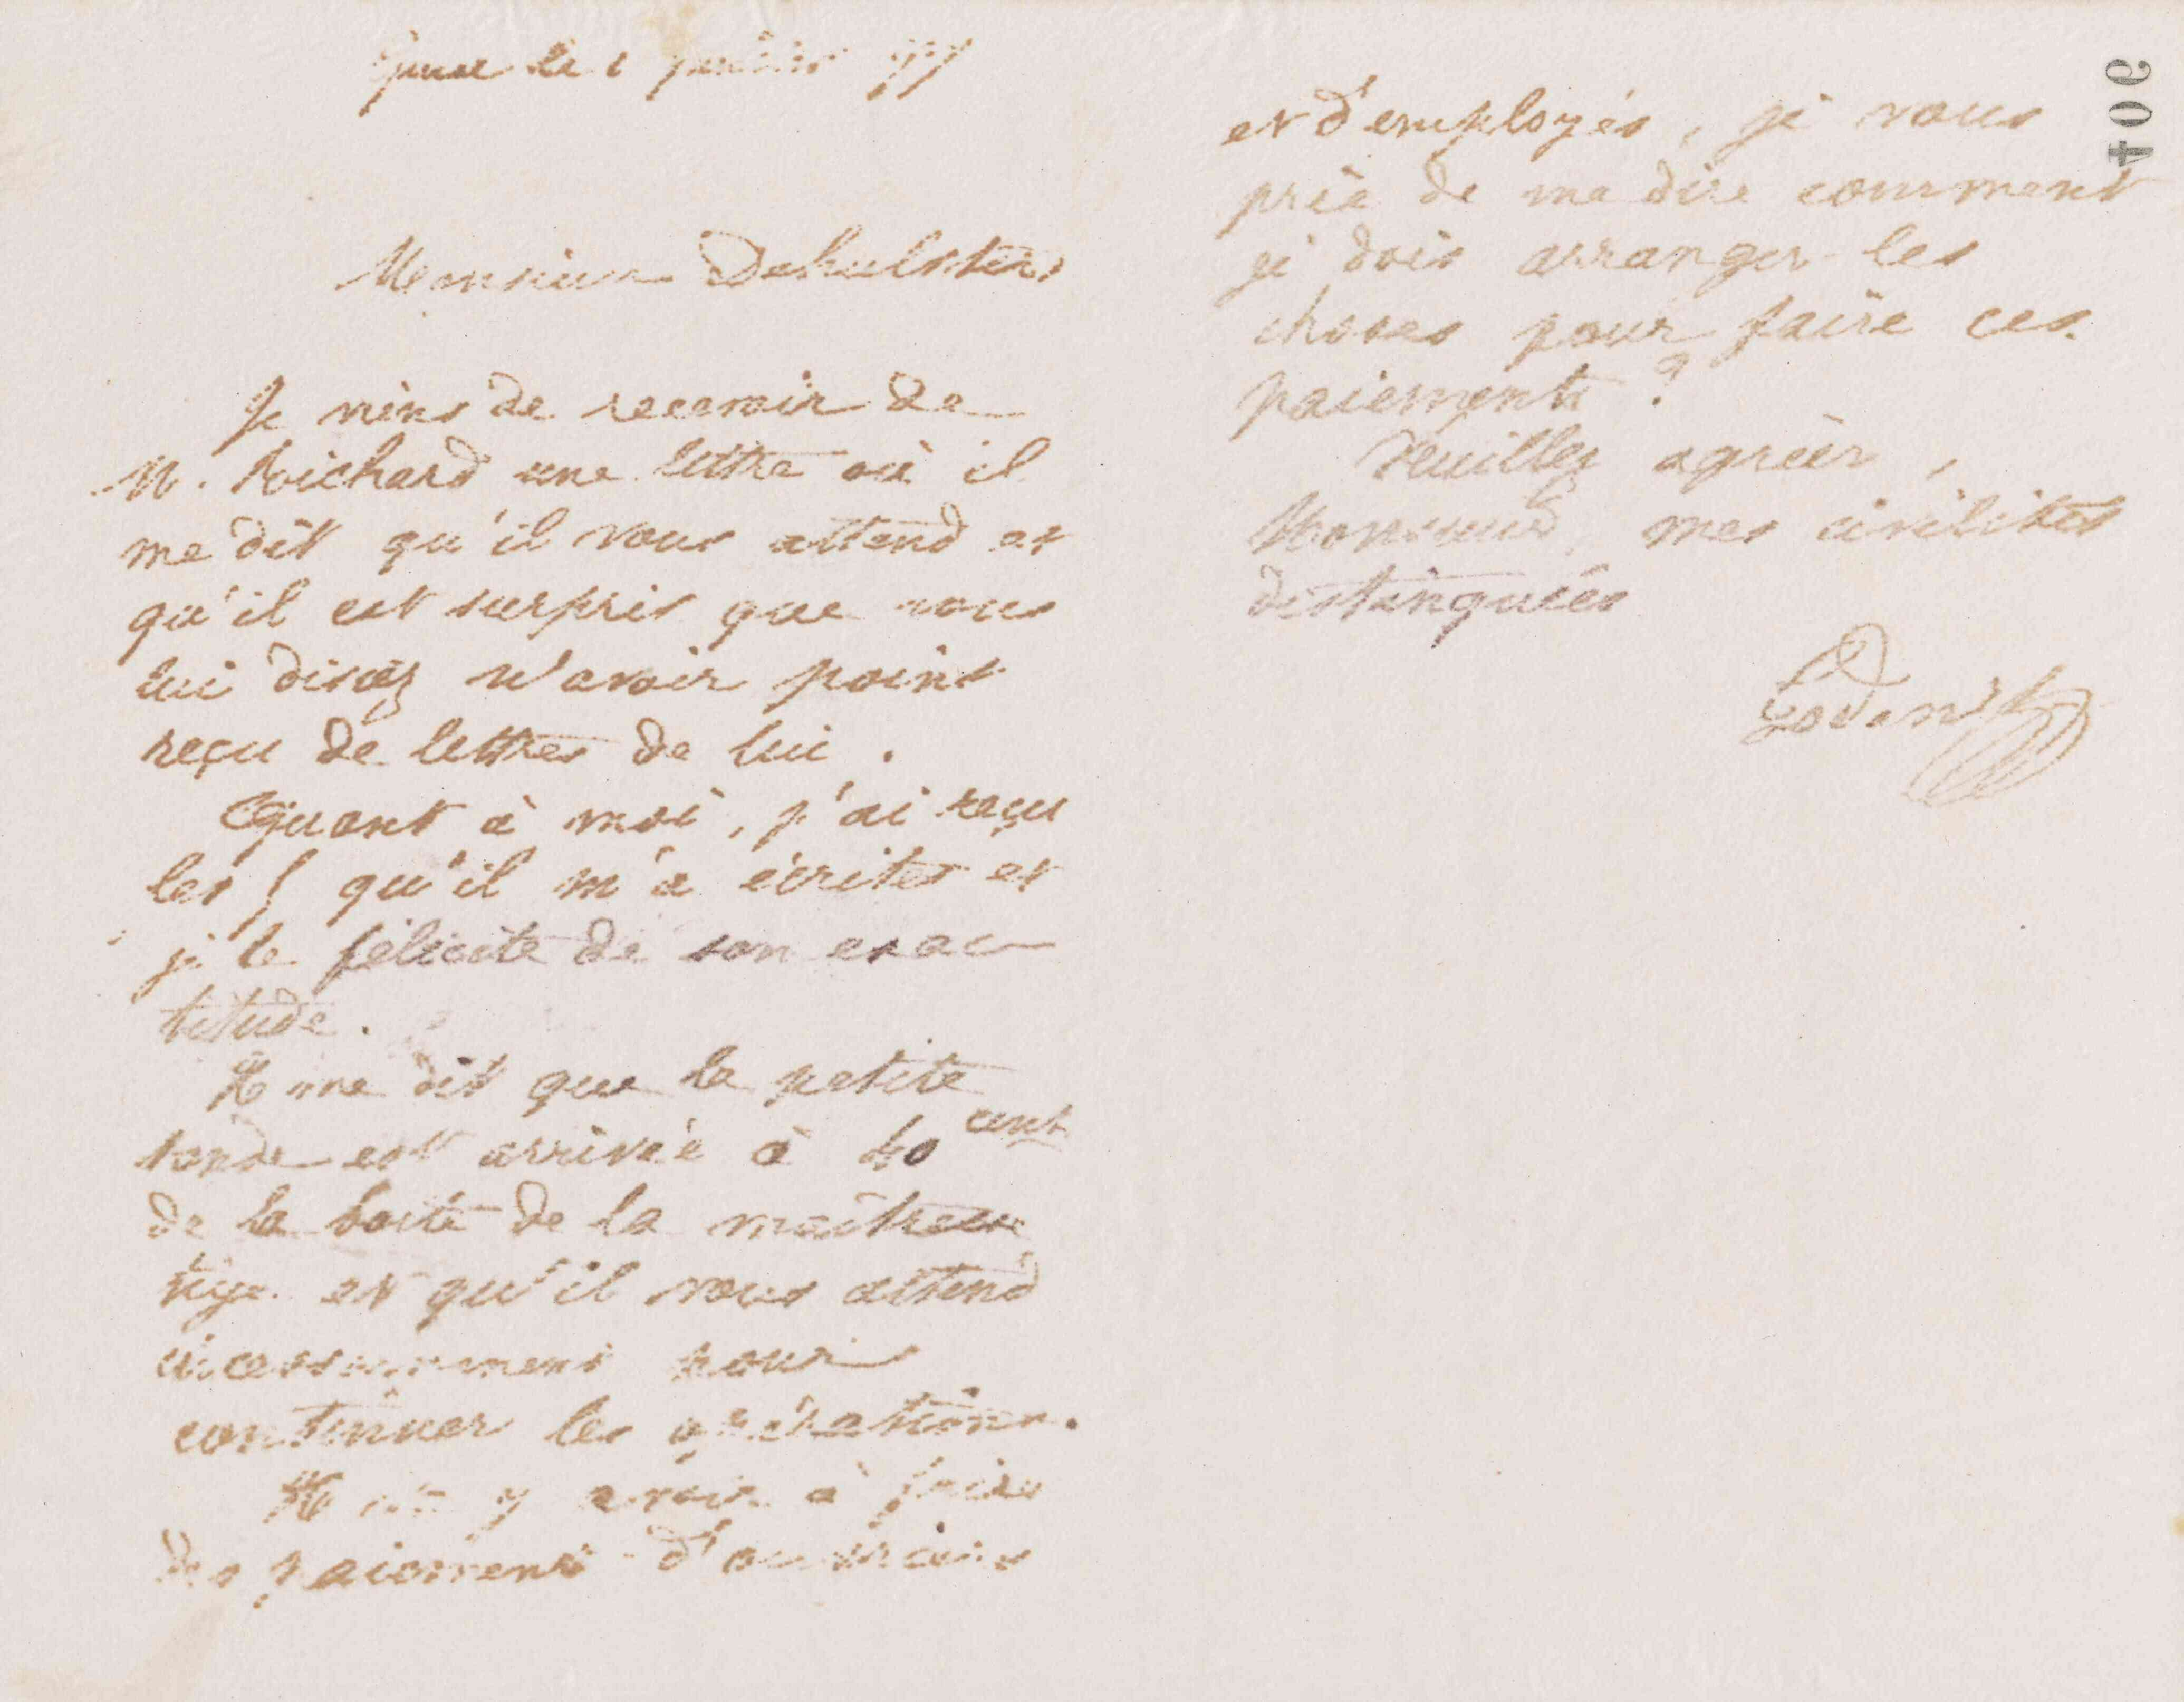 Guise le 1 janvier 77
Monsieur Dehulsters
Je viens de recevoir de
M. Richard une lettre où il
me dit qu'il vous attend et
qu'il est surpris que vous
lui disiez n'avoir point
reçu de lettres de lui.
Quant à moi, j'ai reçu
les qu'il m'a écrites et
je le félicite de son exac
titude.
Il me dit que la petite
sonde est arrivée à 40 cent
de la boite de la maîtresse
tige et qu'il vous attend
incessamment pour
continuer les opérations.
Il y avoir à faire
des paiements d'ouvriers
et d'employés, je vous
prie de me dire comment
je dois arranger les
choses pour faire ces
paiements ?
Veuillez agréer,
Monsieur, mes civilités
distinguées
Godin
904